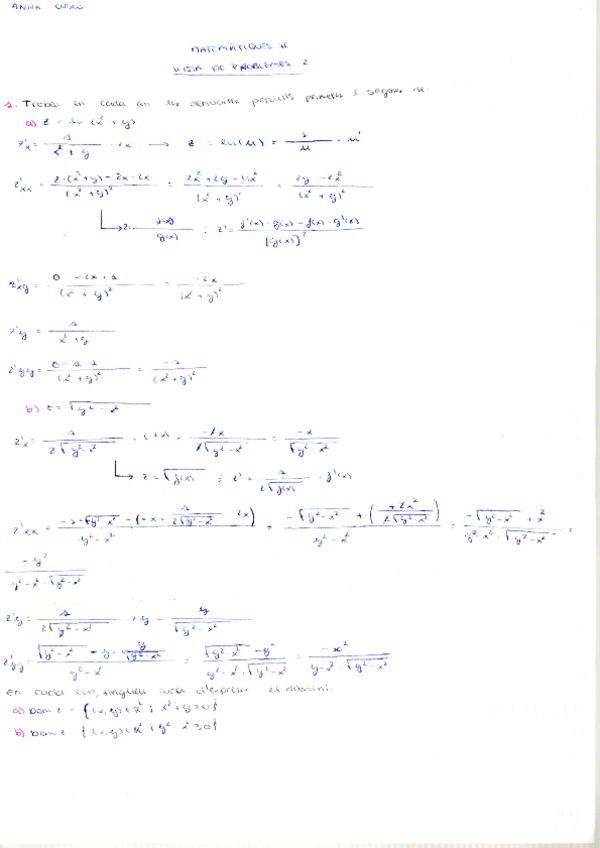 ANNA
MATEMÀTIQUES II
LLISTA DE PROBLEMES 2
1. Troba en cada cas les derivades parcials primeres i segones de:
a) z = ln(x² + y)
z'x = 1 / (x² + y) · 2x → z = ln(u) = 1/u · u'
z'xx = (2·(x²+y) - 2x·2x) / (x²+y)² = (2x² + 2y - 4x²) / (x²+y)² = (2y - 2x²) / (x²+y)²
z = f(x) / g(x) ; z' = (f'(x)·g(x) - f(x)·g'(x)) / [g(x)]²
z'xy = (0 - 2x·1) / (x²+y)² = -2x / (x²+y)²
z'y = 1 / (x²+y)
z'yy = (0 - 1·1) / (x²+y)² = -1 / (x²+y)²
b) z = √(y² - x²)
z'x = 1 / (2√(y²-x²)) · (-2x) = -2x / (2√(y²-x²)) = -x / √(y²-x²)
z = √f(x) ; z' = 1 / (2√f(x)) · f'(x)
z'xx = (-1·√(y²-x²) - (-x · 1/(2√(y²-x²)) · 2x)) / (y²-x²) = (-√(y²-x²) + (+2x² / (2√(y²-x²)))) / (y²-x²) = (-√(y²-x²) + x²) / (y²-x²·√(y²-x²)) =
-y² / (y²-x²·√(y²-x²))
z'y = 1 / (2√(y²-x²)) · y = y / √(y²-x²)
z'yy = (√(y²-x²) - y · y/√(y²-x²)) / (y²-x²) = (√(y²-x²) - y²) / (y²-x²·√(y²-x²)) = -x² / (y-x²·√(y²-x²))
En cada cas, tingueu cura d'expressar el domini.
a) Dom z = {(x,y) ∈ R² ; x²+y>0}
b) Dom z = {(x,y) ∈ R² ; y²-x²≥0}